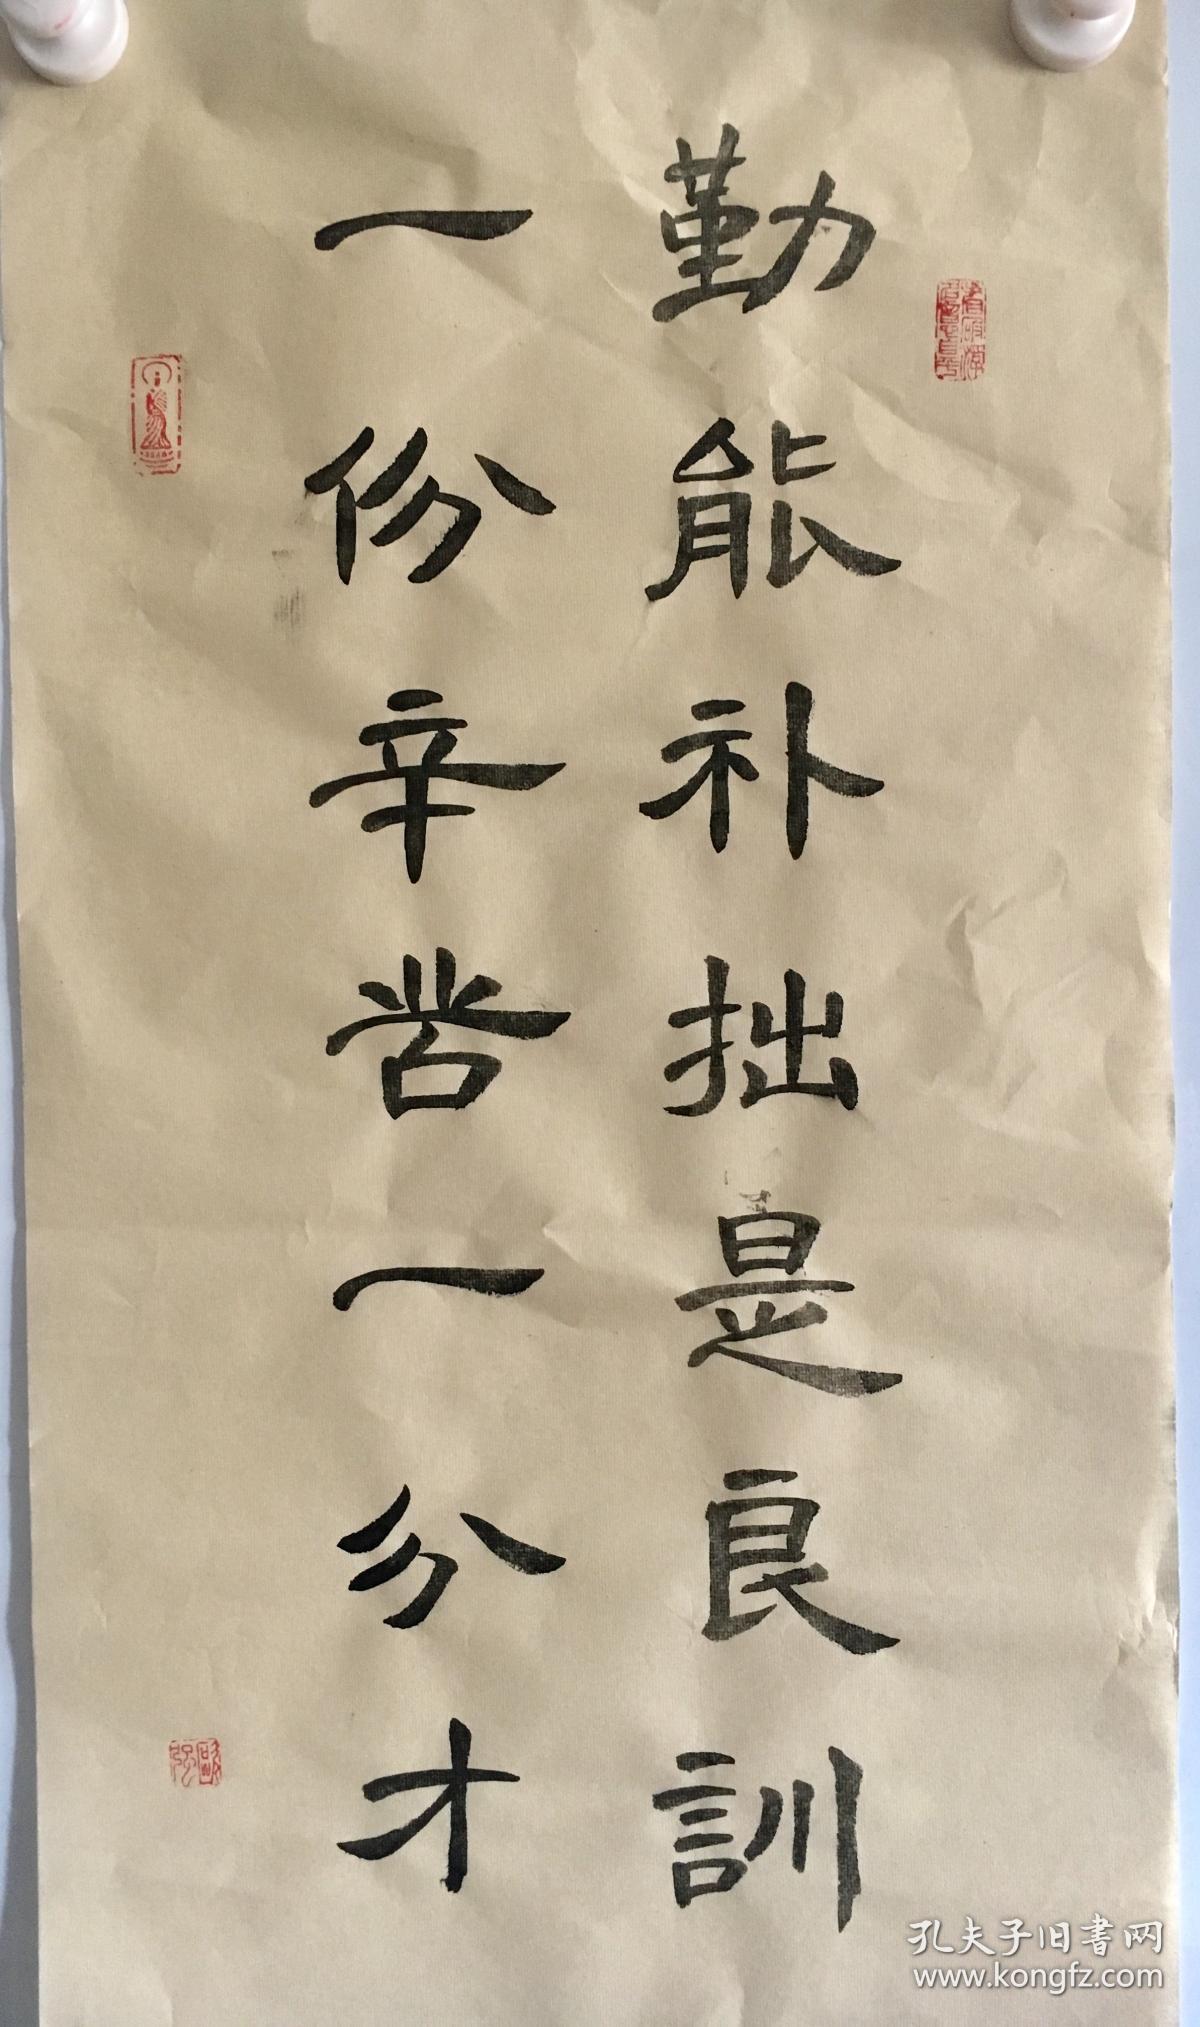 勤能补拙是良訓
一份辛苦一分才
孔夫子旧書网
www.kongfz.com